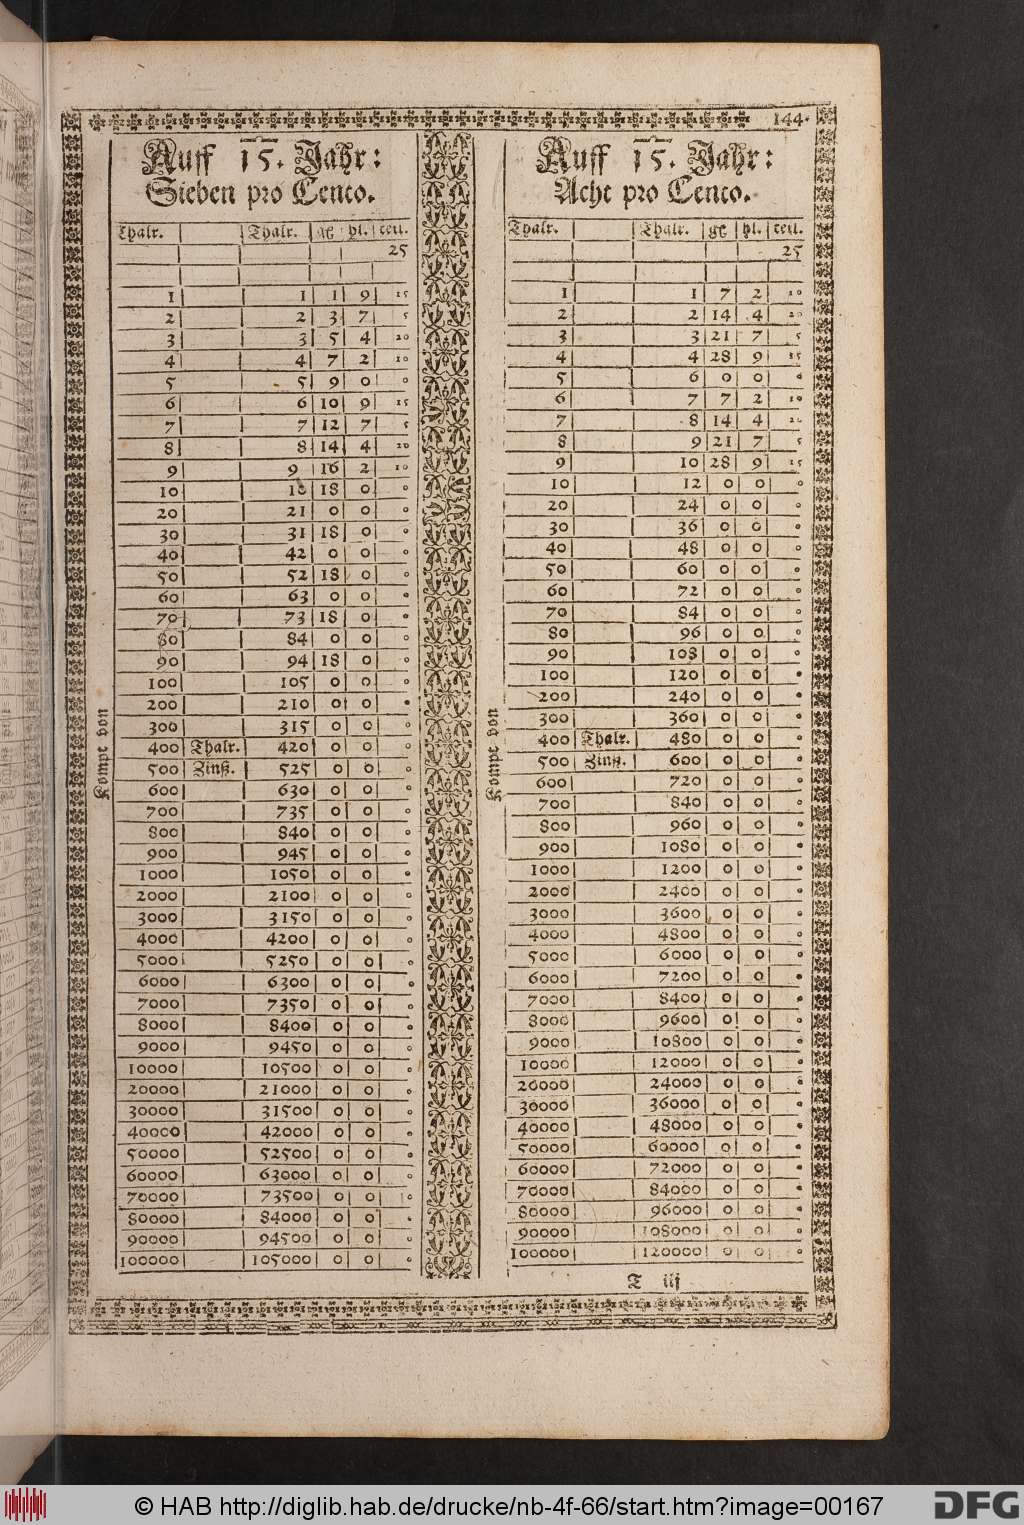 144.
Auff 15. Jahr:
Sieben pro Cento.
Thalr. Thalr. gl hl. teil.
25
1 1 1 9 15
2 2 3 7 5
3 3 5 4 20
4 4 7 2 10
5 5 9 0 0
6 6 10 9 15
7 7 12 7 5
8 8 14 4 20
9 9 16 2 10
10 10 18 0 0
20 21 0 0 0
30 31 18 0 0
40 42 0 0 0
50 52 18 0 0
60 63 0 0 0
70 73 18 0 0
80 84 0 0 0
90 94 18 0 0
100 105 0 0 0
200 210 0 0 0
300 315 0 0 0
400 Thalr. 420 0 0 0
500 Zinß. 525 0 0 0
600 630 0 0 0
700 735 0 0 0
800 840 0 0 0
900 945 0 0 0
1000 1050 0 0 0
2000 2100 0 0 0
3000 3150 0 0 0
4000 4200 0 0 0
5000 5250 0 0 0
6000 6300 0 0 0
7000 7350 0 0 0
8000 8400 0 0 0
9000 9450 0 0 0
10000 10500 0 0 0
20000 21000 0 0 0
30000 31500 0 0 0
40000 42000 0 0 0
50000 52500 0 0 0
60000 63000 0 0 0
70000 73500 0 0 0
80000 84000 0 0 0
90000 94500 0 0 0
100000 105000 0 0 0
Kompt von
Auff 15. Jahr:
Acht pro Cento.
Thalr. Thalr. gl hl. teil.
25
1 1 7 2 10
2 2 14 4 20
3 3 21 7 5
4 4 28 9 15
5 6 0 0 0
6 7 7 2 10
7 8 14 4 20
8 9 21 7 5
9 10 28 9 15
10 12 0 0 0
20 24 0 0 0
30 36 0 0 0
40 48 0 0 0
50 60 0 0 0
60 72 0 0 0
70 84 0 0 0
80 96 0 0 0
90 108 0 0 0
100 120 0 0 0
200 240 0 0 0
300 360 0 0 0
400 Thalr. 480 0 0 0
500 Zinß. 600 0 0 0
600 720 0 0 0
700 840 0 0 0
800 960 0 0 0
900 1080 0 0 0
1000 1200 0 0 0
2000 2400 0 0 0
3000 3600 0 0 0
4000 4800 0 0 0
5000 6000 0 0 0
6000 7200 0 0 0
7000 8400 0 0 0
8000 9600 0 0 0
9000 10800 0 0 0
10000 12000 0 0 0
20000 24000 0 0 0
30000 36000 0 0 0
40000 48000 0 0 0
50000 60000 0 0 0
60000 72000 0 0 0
70000 84000 0 0 0
80000 96000 0 0 0
90000 108000 0 0 0
100000 120000 0 0 0
Kompt von
T iij
© HAB http://diglib.hab.de/drucke/nb-4f-66/start.htm?image=00167
DFG